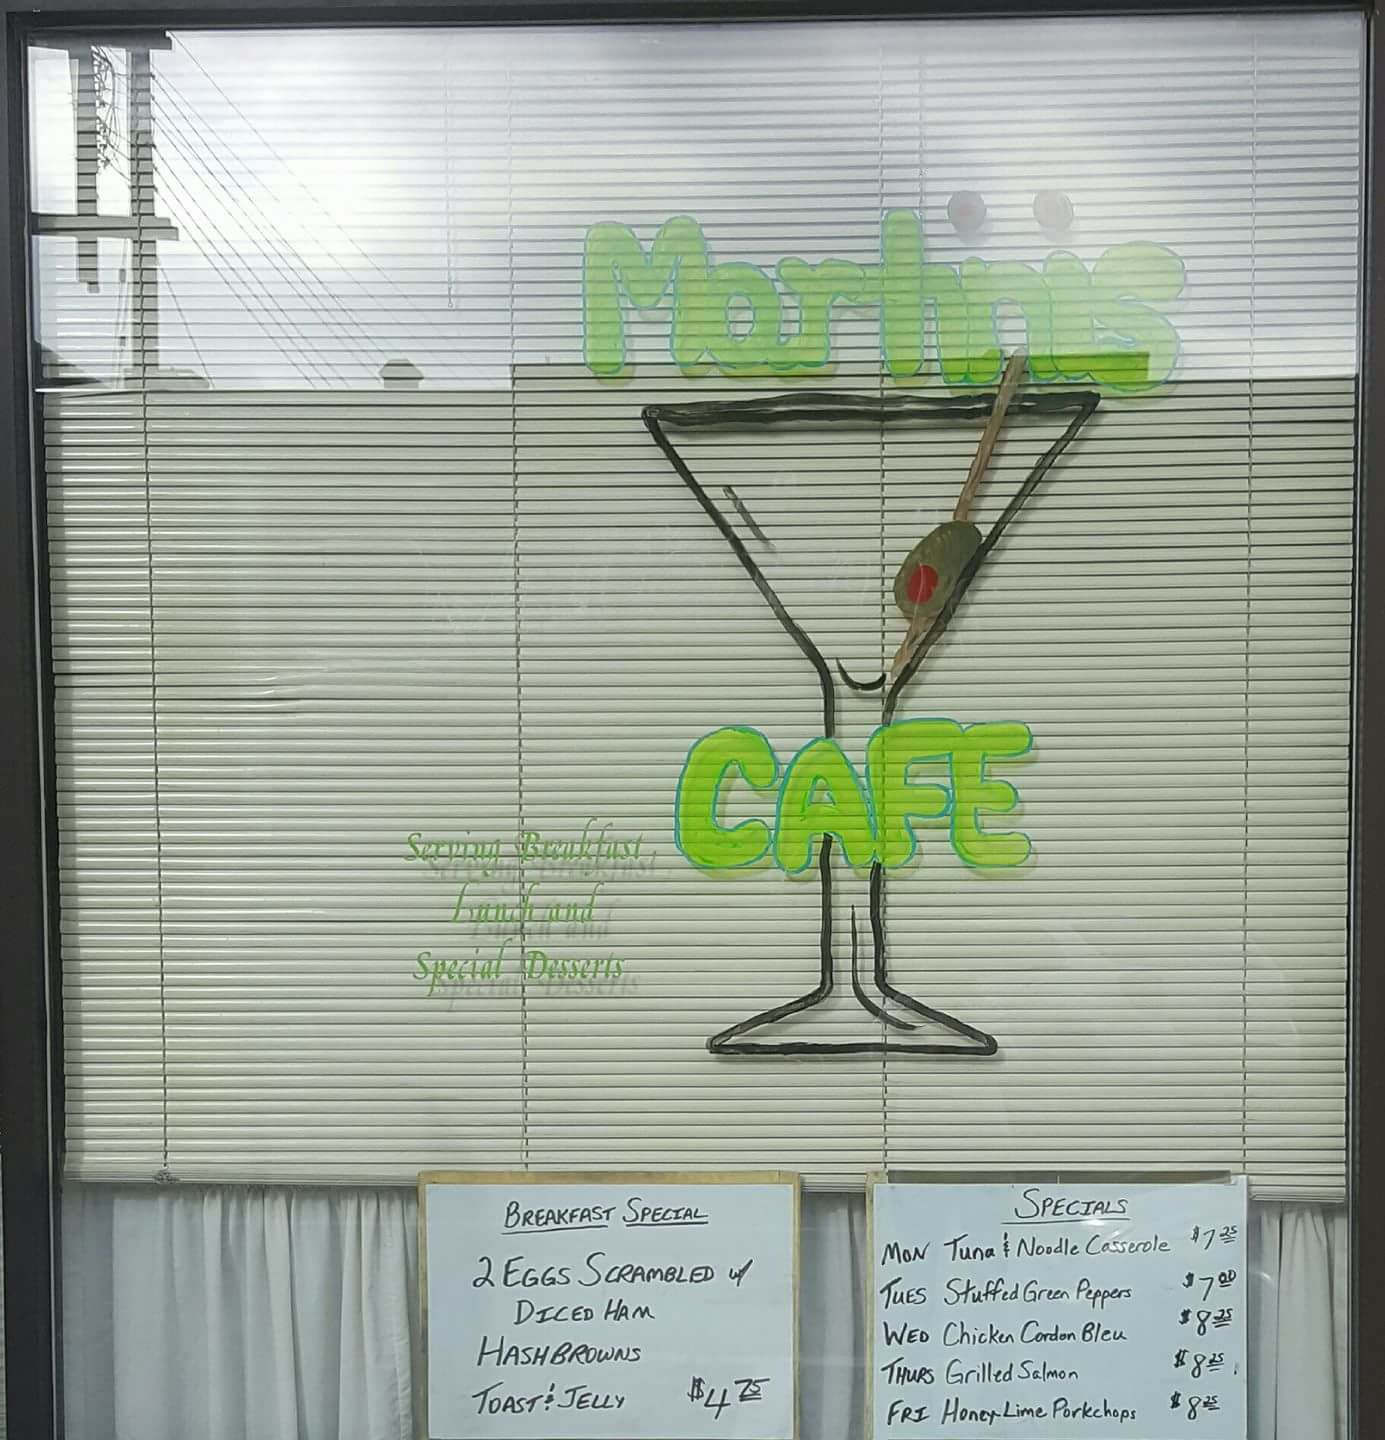 Martinis
CAFE
Serving Breakfast
Lunch and
Special Desserts
BREAKFAST SPECIAL
2 EGGS SCRAMBLED w/
DICED HAM
HASHBROWNS
TOAST & JELLY $4.75
SPECIALS
MON Tuna & Noodle Casserole $7.25
TUES Stuffed Green Peppers $7.00
WED Chicken Cordon Bleu $8.25
THURS Grilled Salmon $8.25
FRI Honey-Lime Porkchops $8.25